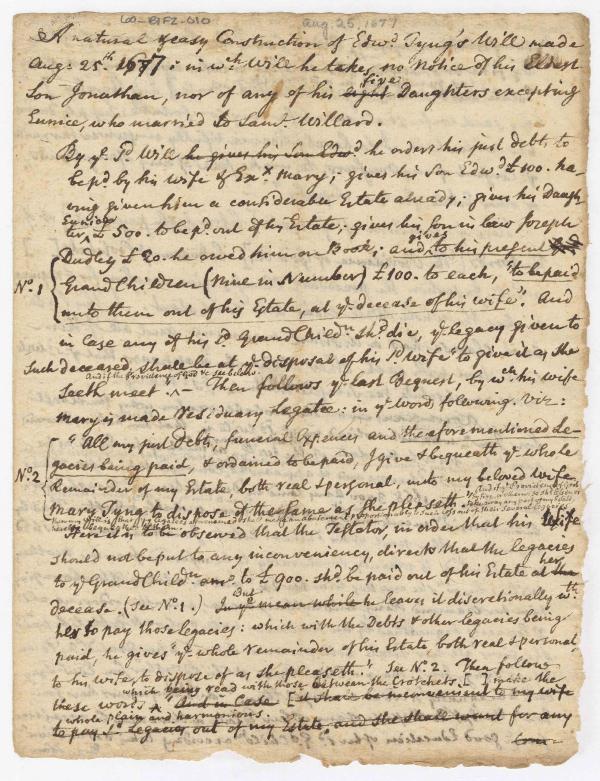 60-B1F2-010
Aug. 25, 1677
A natural & easy Construction of Edwd. Tyng's Will made
Augt. 25th. 1677: in wch. Will he takes no Notice of his Eldest
five
Son Jonathan, nor of any of his eight Daughters excepting
Eunice, who married to Saml. Willard.
By ye. sd. Will he gives his Son Edwd. he orders his just debts to
be pd. by his wife & Exx. Mary; gives his Son Edwd. £100. ha-
ving given him a considerable Estate already; gives his Daugh-
Eunice
ter, ^ £500. to be pd. out of his Estate; gives his Son in law Joseph
gives
Dudley £20. he owed him on Book; and ^ to his present
No. 1
Grand Children (Nine in Number) £100. to each, "to be paid
unto them out of his Estate, at ye. decease of his wife". And
in Case any of his sd. Grand Childn. shd. die, ye. legacy given to
Such deceased, shall be at ye. disposal of his sd. Wife "to give it as she
And if the Providence of God &c
Seeth meet ^ — Then follows ye. last Bequest, by wch. his wife
Mary is made Residuary Legatee: in ye. Words following. Viz:
No. 2
"All my just Debts, funeral Expences and the aforementioned Le-
gacies being paid, & ordained to be paid, I give & bequeath ye. whole
Remainder of my Estate, both real & personal, unto my beloved Wife
Mary Tyng to dispose of the same as She pleaseth
Here it is to be observed that the Testator, in order that his Wife
should not be put to any inconveniency, directs that the legacies
her
to ye. Grand Childn. amo. to £900. shd. be paid out of his Estate at the
But
decease. (See No. 1.) In ye. mean while he leaves it discretionally wth.
her to pay those legacies: which with the Debts & other legacies being
paid, he gives "ye. whole remainder of his Estate, both real & personal
to his wife, to dispose of as she pleaseth." See No. 2. Then follow
which being read with those between the Crotchets [ ] make the
these words ^ And in Case [it shall be inconvenient to my wife
whole plain and harmonious.
to pay sd. Legacies out of my Estate, and she shall want for any